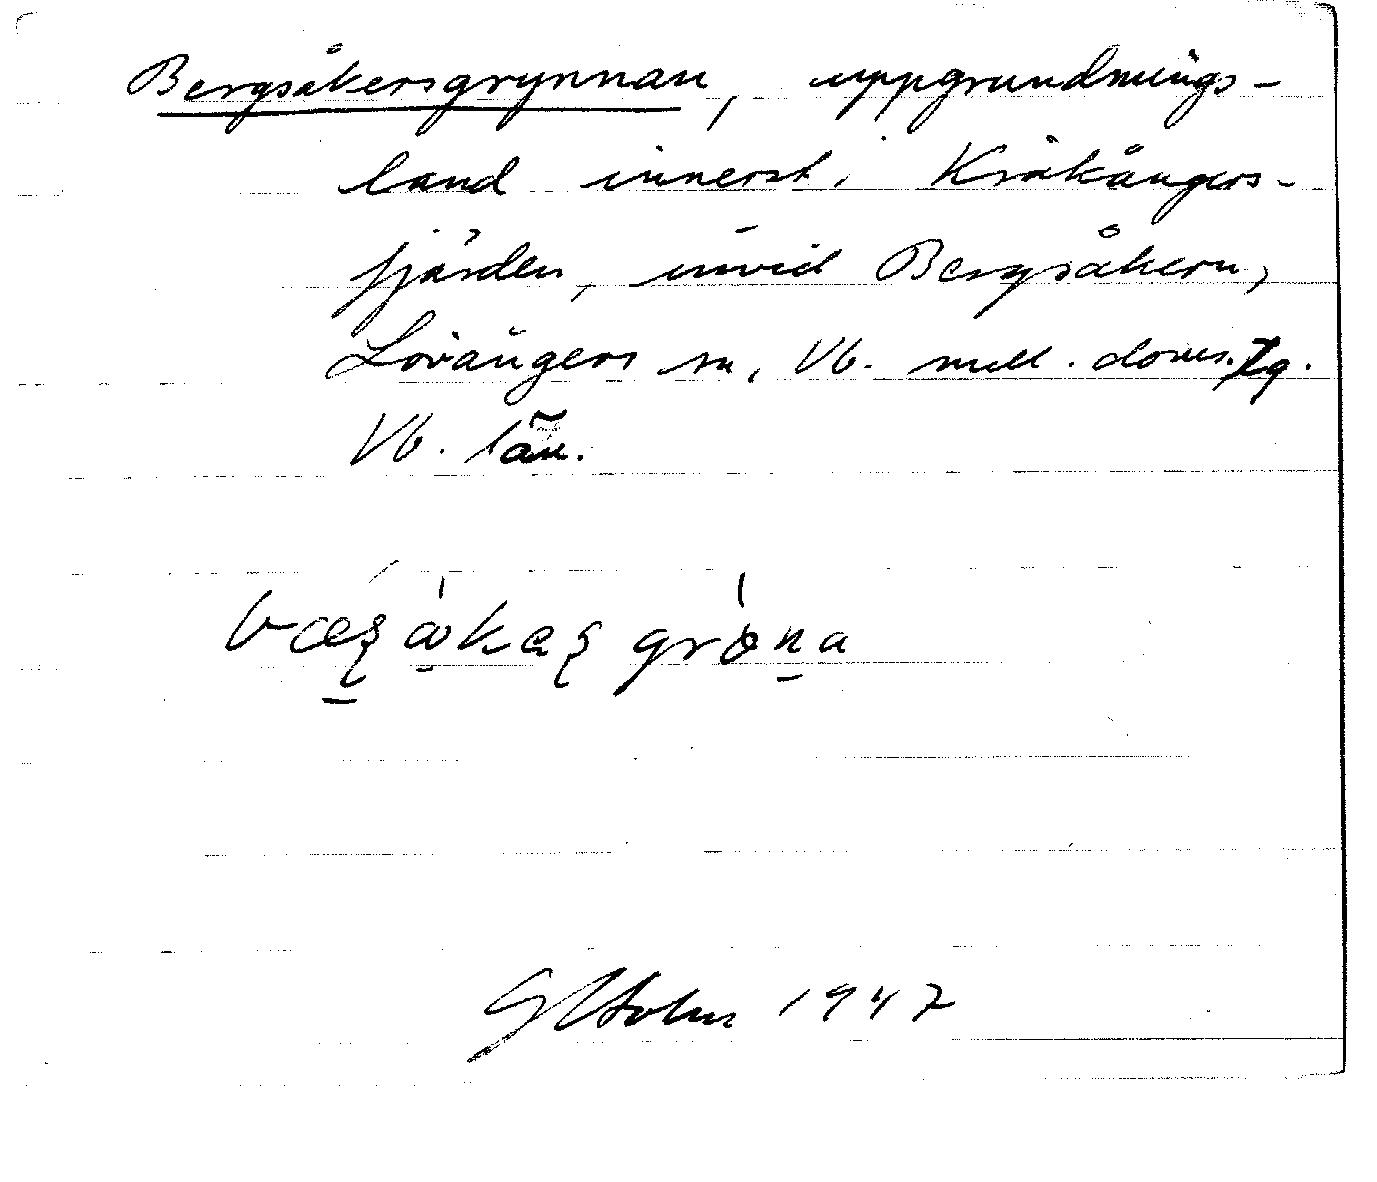 Bergsåkersgrynnan, uppgrundnings-
land innerst i Kråkångers-
fjärden, invid Bergsåkern,
Lövångers sn, Vb. mell. doms. tg.
Vb. län.
grøn̠a
1947